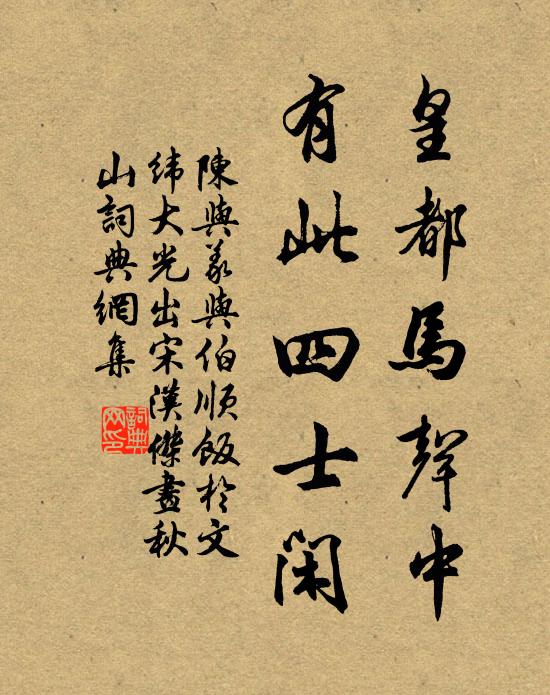 皇都馬聲中
有此四士閑
陳與義與伯順飯於文
緯大光出宋漢傑畫秋
山詞典網集
詞典網印